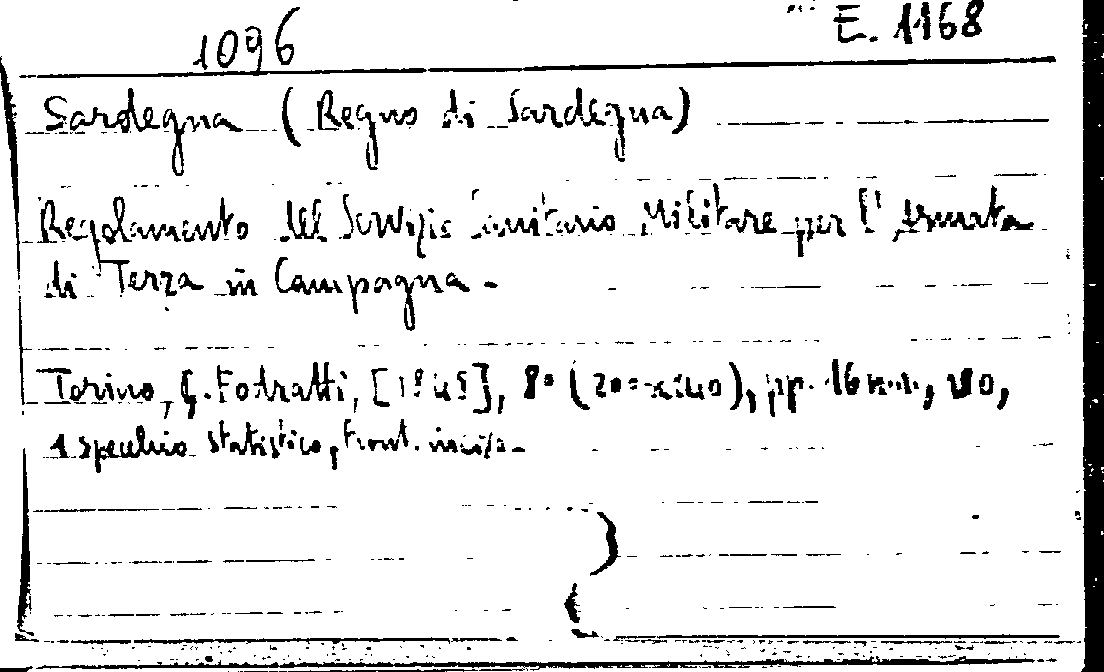 1096 E. 1168
Sardegna (Regno di Sardegna)
Regolamento del Servizio Sanitario Militare per l'Armata
di Terza in Campagna.
Torino, G. Fodratti, pp. 16
1 specchio statistico, front. inciso.